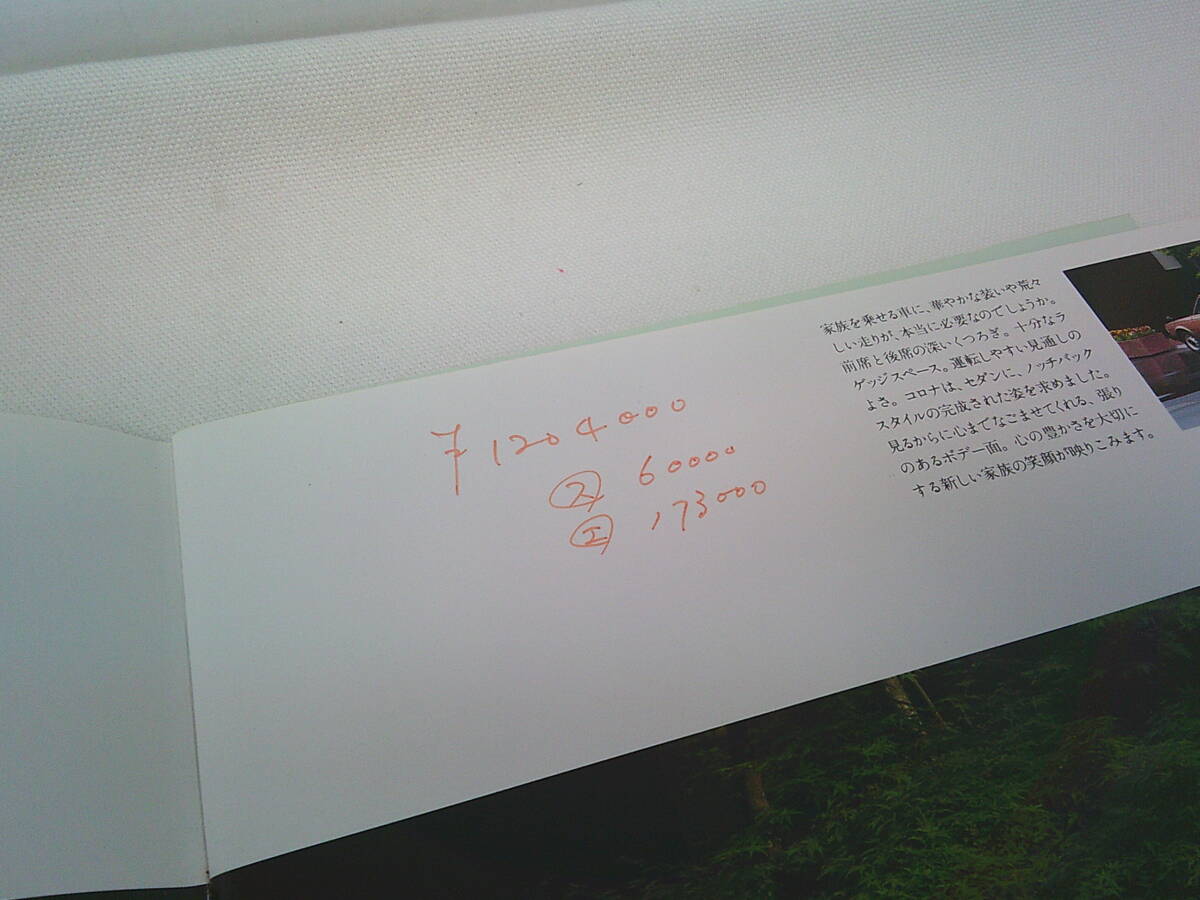 ¥1204000
ス 60000
エ 173000
家族を乗せる車に、華やかな装いや荒々
しい走りが、本当に必要なのでしょうか。
前席と後席の深いくつろぎ。十分なラ
ゲッジスペース。運転しやすい見通しの
よさ。コロナは、セダンに、ノッチバック
スタイルの完成された姿を求めました。
見るからに心までなごませてくれる、張り
のあるボデー面。心の豊かさを大切に
する新しい家族の笑顔が映りこみます。